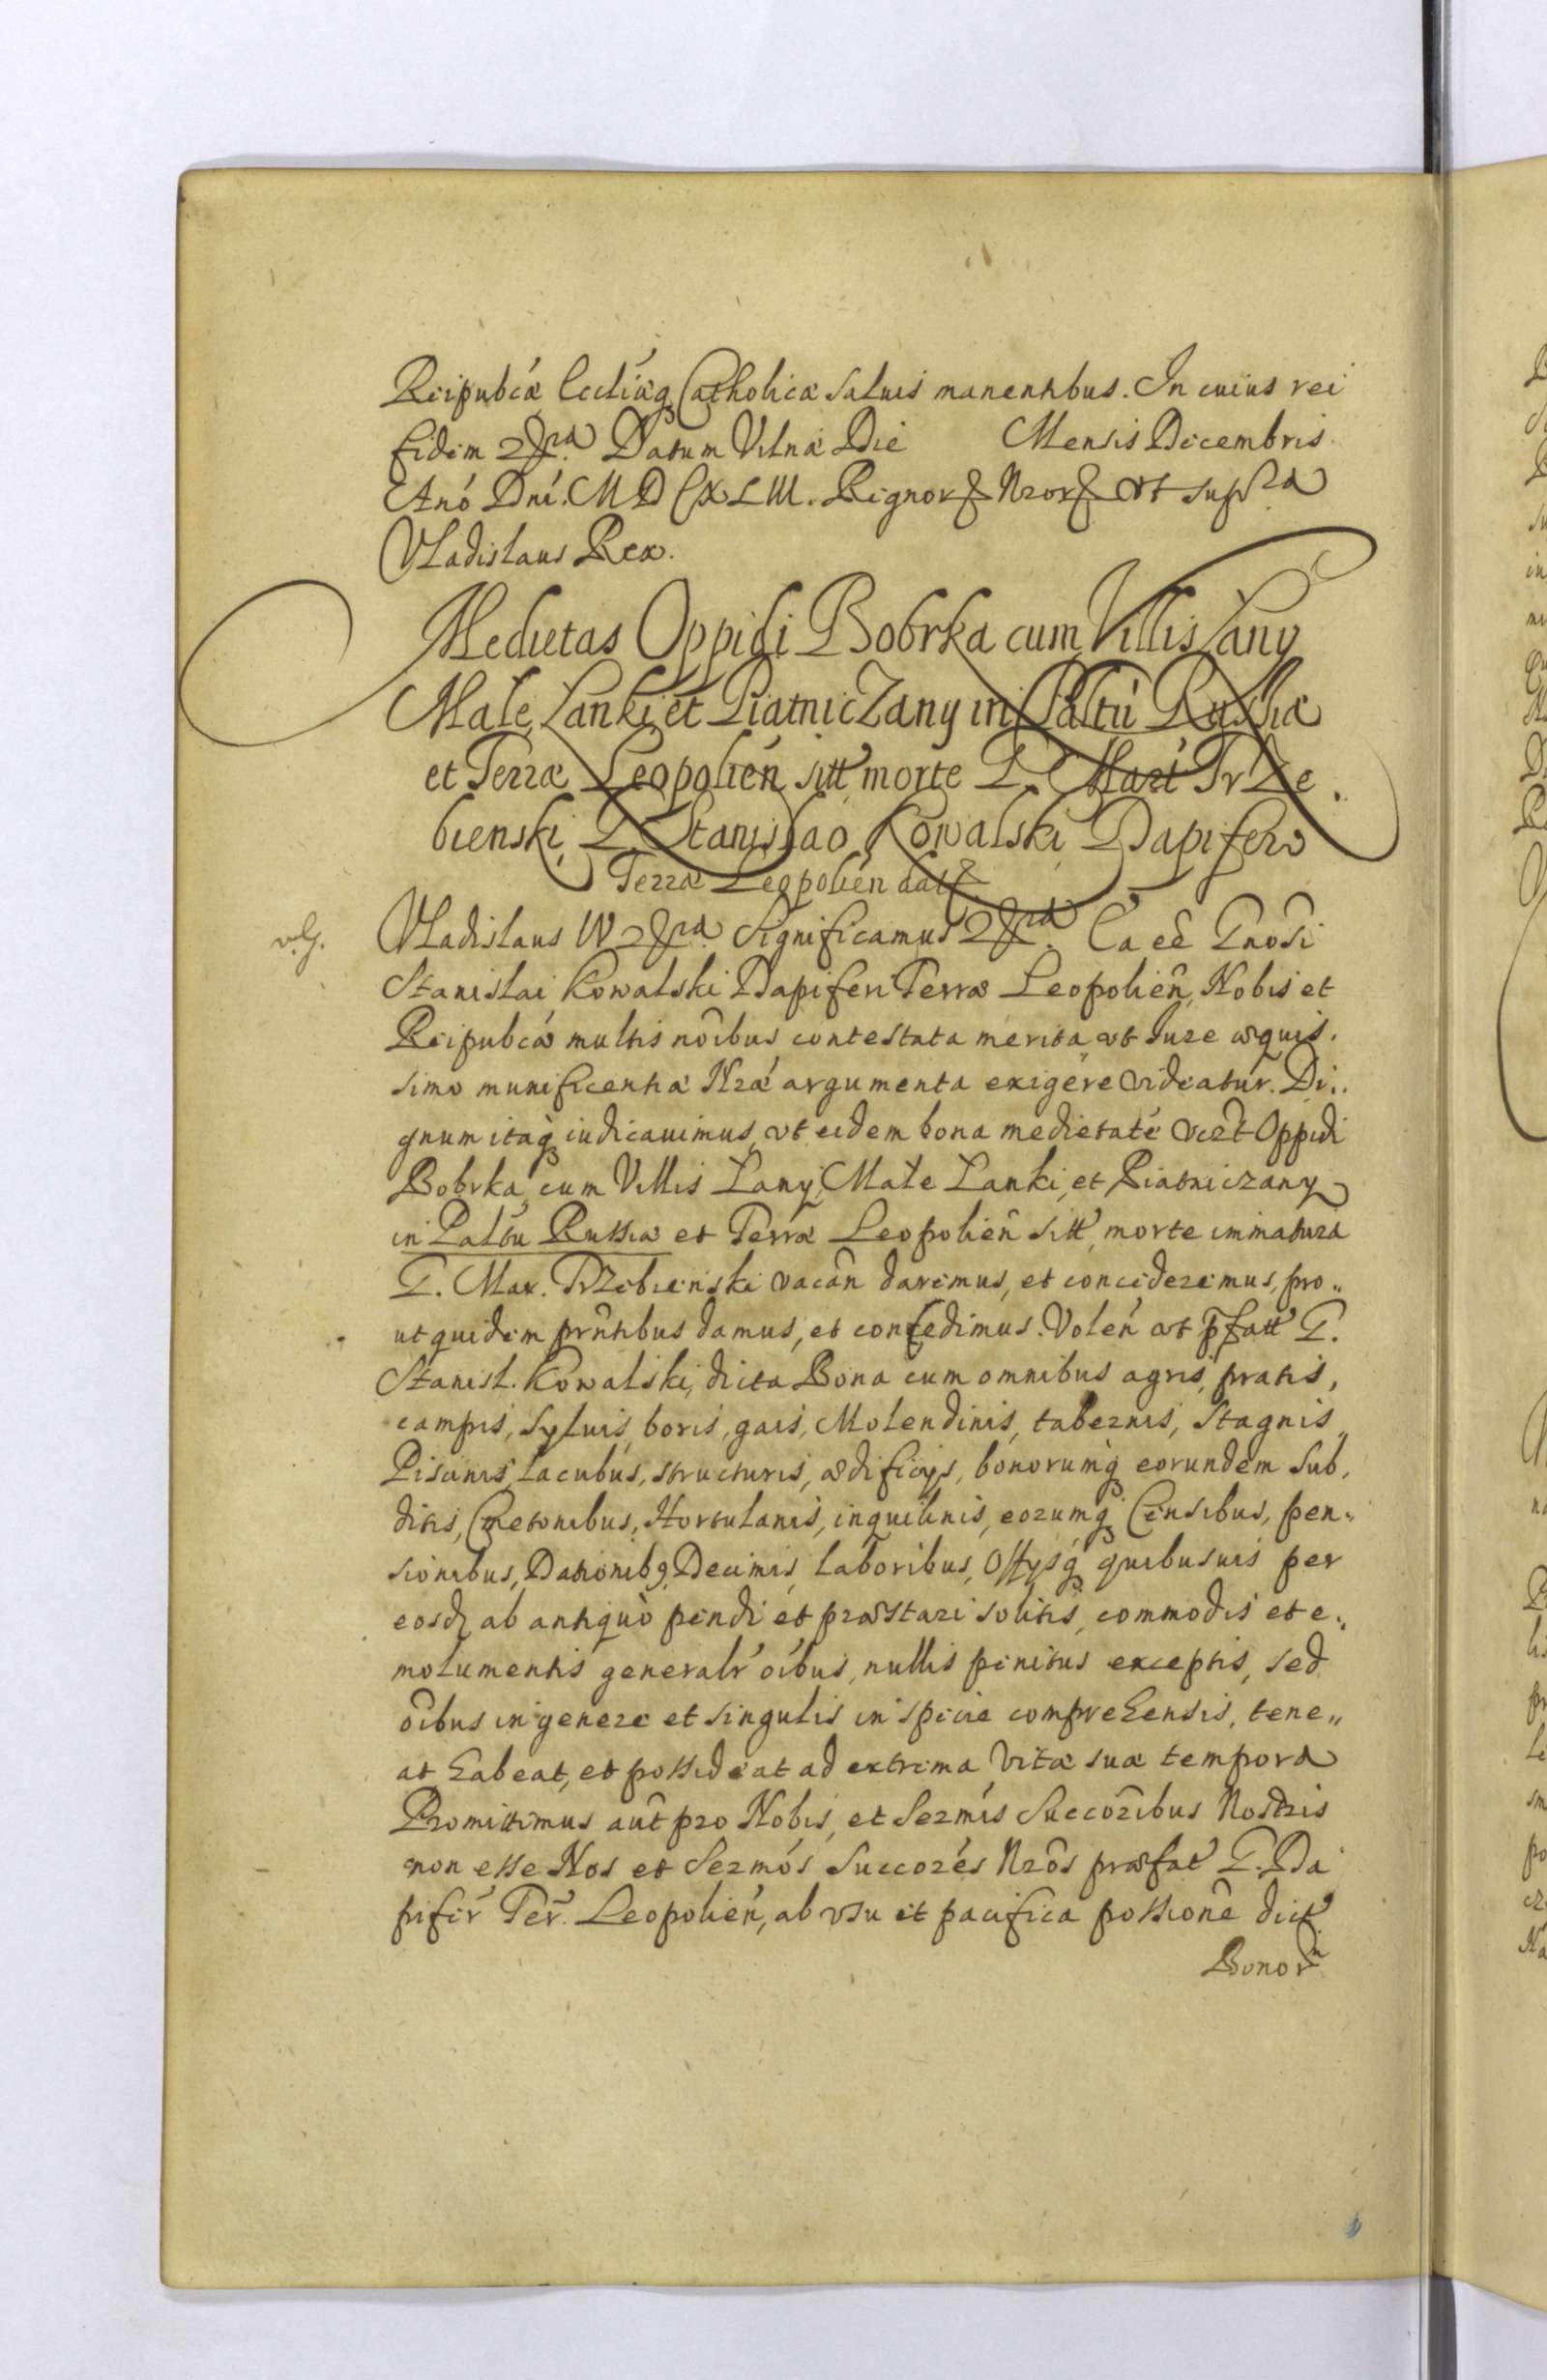 Reipubcá Ecclíaq Catholicæ saluis manentibus. In cuius rei
fidem Datum Vilnæ Die Mensis Decembris
Anó Dní. MDCXLIII. Regnor Nror vt supra
Vladislaus Rex.
Medietas Oppidi Bobrka cum Villis Lany
Małe Lanki et Piatniczany in Paltú Russiæ
et Terræ Leopolién sitt morte G. Mart Trze.
bienski, G. Stanislao Kowalski Dapifero
Terræ Leopolién dat
Vladislaus IV Significamus Ea eê Gnosi
Stanislai Kowalski Dapiferi Terræ Leopoliên, Nobis et
Reipubcá multis noîbus contestata merita, vt Iure æquis.
simo munificentiæ Nræ argumenta exigere videatúr. Di..
gnum itaq iudicauimus, vt eidem bona medietaté vcrt Oppidi
Bobrka, cum Villis Lany, Małe Lanki, et Piatniczany
in Paltu Russiæ et Terræ Leopoliên sitt, morte immatura
G. Mar. Trzebienski vacân daremus, et concederemus, pro..
ut quidem prntibus damus, et concedimus. Volén vt pfatt G.
Stanisl. Kowalski, dicta Bona cum omnibus agris, pratis,
campis, syluis, boris, gais, Molendinis, tabernis, stagnis,
Piscinis, lacubus, structuris, ædificijs, bonorumq eorundem sub,
ditis, Cmetonibus, Hortulanis, inquilinis, eorumq Censibus, pen..
sionibus, Dationibq, Decimis, laboribus, Offysq quibusuis per
eosd ab antiquò pendi et præstari solitis, commodis et e..
molumentis generalr oîbus, nullis penitus exceptis, sed
oîbus in genere et singulis in specie comprehensis, tene..
at habeat, et possideat ad extrema vitæ suæ tempora
Promittimus aut pro Nobis, et Sermís Succorîbus Nostris
non esse Nos et Sermós Succorés Nros præfat G. Da
pifer Ter. Leopolién, ab vsu et pacifica possione dict
Bonor